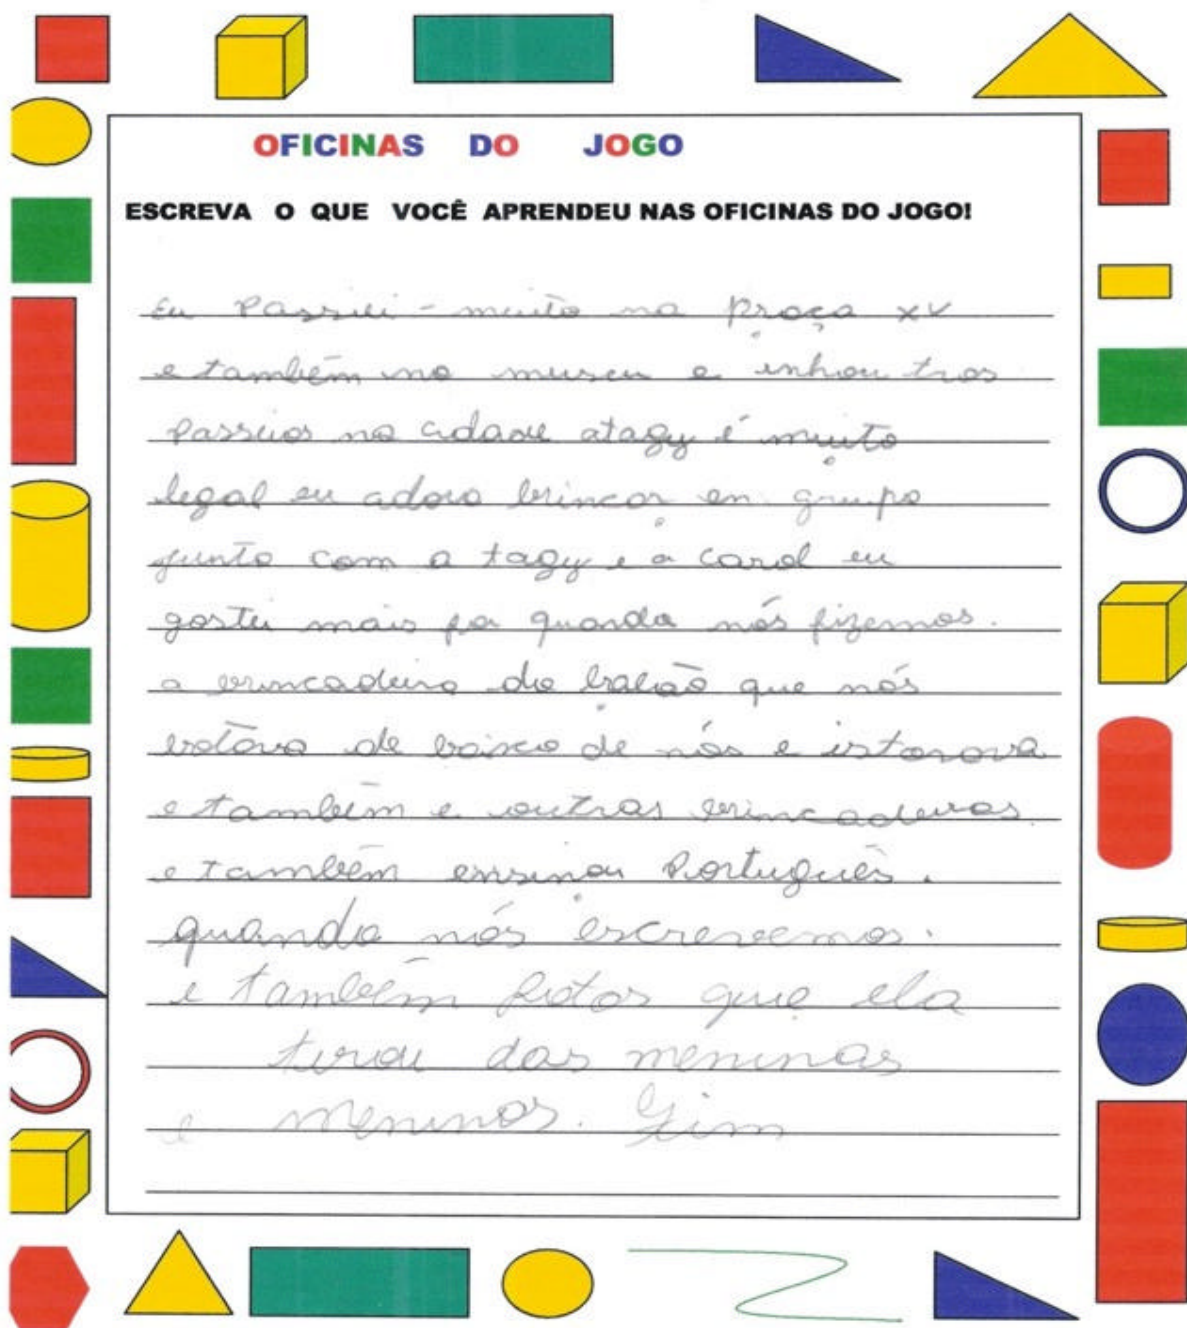 OFICINAS DO JOGO
ESCREVA O QUE VOCÊ APRENDEU NAS OFICINAS DO JOGO!
Eu Passiei - muito na praça XV
e também no museu e inhou tros
passeios na cidade atagy é muito
legal eu adoro brincar en grupo
junto com a tagy e a carol eu
gostei mais foi quando nós fizemos.
a brincadeira do balão que nós
botava de baixo de nós e istorava
e também e outras brincadeiras.
e também ensinou Português.
quando nós escrevemos.
e também fotos que ela
tirou das meninas
e meninos. Fim